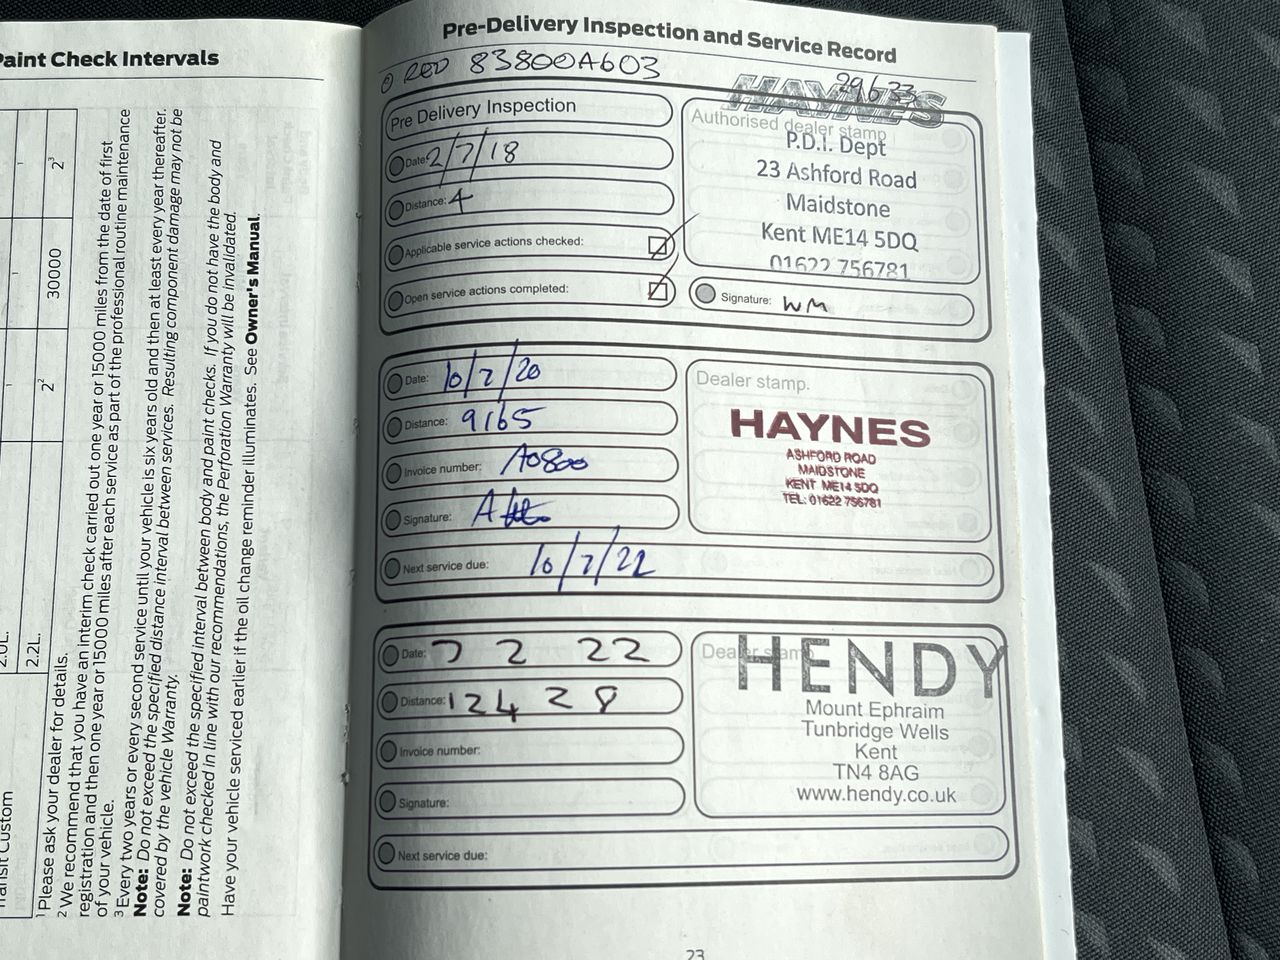 Paint Check Intervals
2.0L.
2.2L.
2²
30000
2³
Transit Custom
¹ Please ask your dealer for details.
² We recommend that you have an interim check carried out one year or 15000 miles from the date of first
registration and then one year or 15000 miles after each service as part of the professional routine maintenance
of your vehicle.
³ Every two years or every second service until your vehicle is six years old and then at least every year thereafter.
Note: Do not exceed the specified distance interval between services. Resulting component damage may not be
covered by the vehicle Warranty.
Note: Do not exceed the specified interval between body and paint checks. If you do not have the body and
paintwork checked in line with our recommendations, the Perforation Warranty will be invalidated.
Have your vehicle serviced earlier if the oil change reminder illuminates. See Owner's Manual.
Pre-Delivery Inspection and Service Record
RED 83800A603
29633
Pre Delivery Inspection
Date: 2/7/18
Distance: 4
Applicable service actions checked:
Open service actions completed:
HAYNES
Authorised dealer stamp
P.D.I. Dept
23 Ashford Road
Maidstone
Kent ME14 5DQ
01622 756781
Signature: WM
Date: 10/7/20
Distance: 9165
Invoice number: A0800
Signature:
Next service due: 10/7/22
Dealer stamp.
HAYNES
ASHFORD ROAD
MAIDSTONE
KENT ME14 5DQ
TEL: 01622 756781
Date: 7 2 22
Distance: 12428
Invoice number:
Signature:
Next service due:
Dealer stamp
HENDY
Mount Ephraim
Tunbridge Wells
Kent
TN4 8AG
www.hendy.co.uk
23